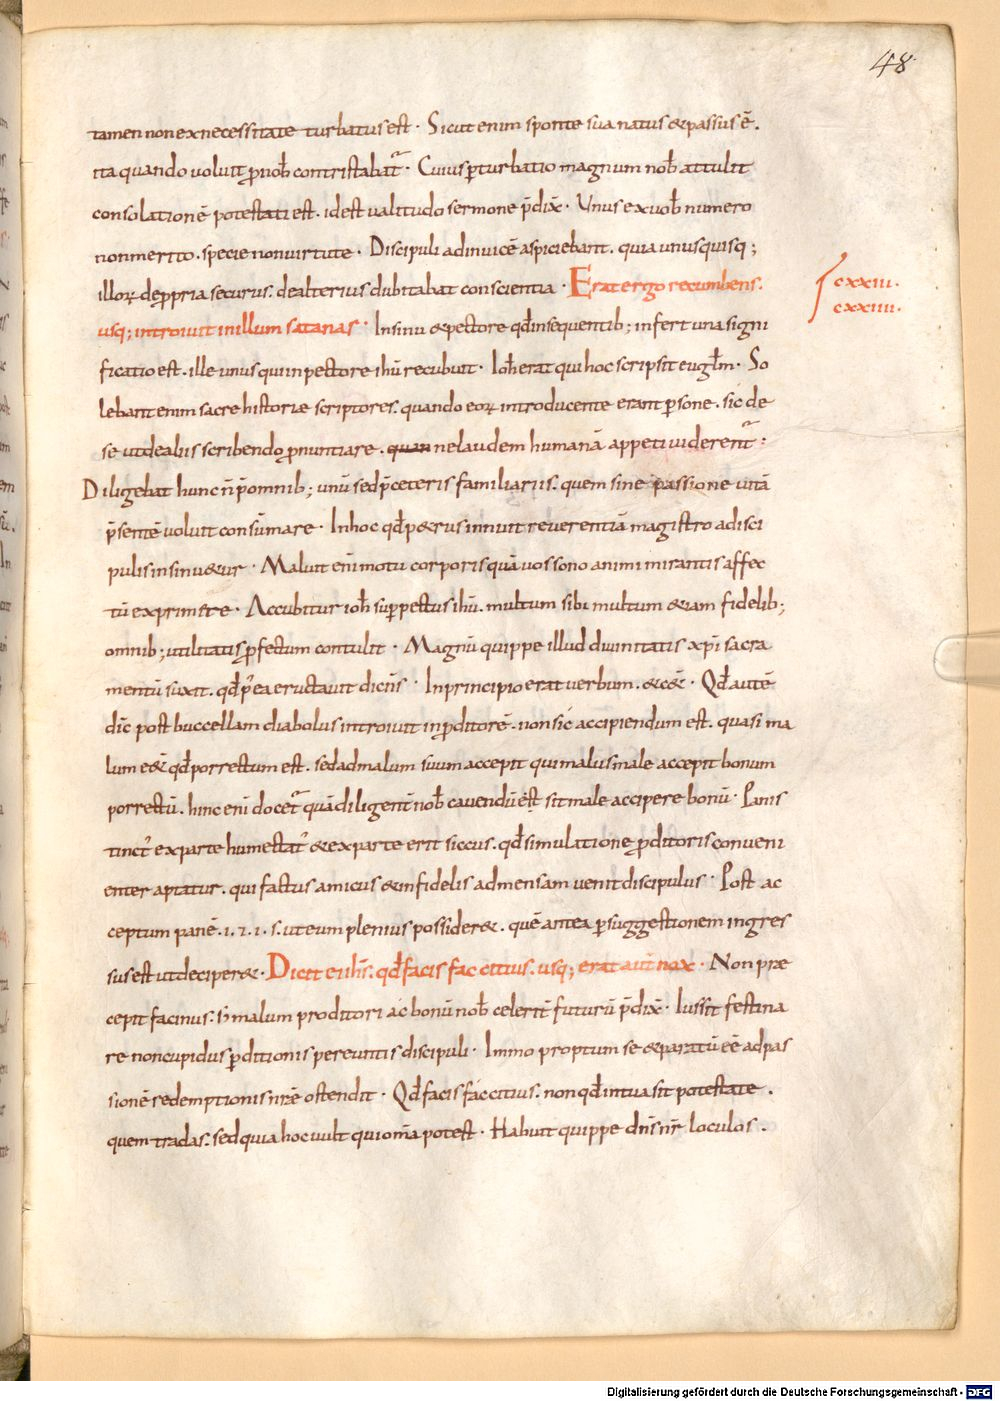 48
tamen non ex necessitate turbatus est · Sicut enim sponte sua natus & passus ē .
ita quando voluit ꝓ nob̄ contristabat᷑ · Cuius ꝑturbatio magnum nob̄ attulit
consolationē potestati est . id est valitudo sermone p̄dix̄ · Unus ex vob̄ numero
non merito . specie non virtute · Discipuli adinuicē aspiciebant . quia unusquisq;
illoꝝ de ꝓpria securus . de alterius dubitabat conscientia · Erat ergo recumbens .
usq; introiuit in illum satanas · In sinu & pectore qd̄ in sequentib; infert una signi
ficatio est . ille unus qui in pectore ih̄u recubuit · Ioh̄ erat qui hoc scripsit eugl̄m · So
lebant enim sacre historiæ scriptores . quando eoꝝ introducente erant ꝑsone . sic de
se ut de aliis scribendo ꝓnuntiare . quan ne laudem humanā appeti viderent᷑ :
Diligebat hunc n̄ p̄ omnib; unū sed p̄ ceteris familiarius . quem sine passione vitā
p̄sentē voluit consūmare · In hoc qd̄ p&rus innuit reverentiā magistro a disci
pulis insinu&ur · Maluit enī motu corporis quā vos sono animi mirantis affec
tū exprimere · Accubitur ioh̄ suꝑ pectus ih̄u . multum sibi multum &iam fidelib;
omnib; utilitatis ꝓfectum contulit · Magnū quippe illud divinitatis xp̄i sacra
mentū suxit . qd̄ p̄ ea eructauit dicn̄s · In principio erat verbum . & c&̄ · Qd̄ autē
dic̄ post buccellam diabolus introiuit in ꝓditorē . non sic accipiendum est . quasi ma
lum e&̄ qd̄ porrectum est . sed ad malum suum accepit qui malus male accepit bonum
porrectū . hinc enī docet᷑ quā diligent̄ nob̄ cavendū est sit male accipere bonū · Panis
tinct᷒ ex parte humectat᷒ & ex parte erit siccus . qd̄ simulatione ꝓditoris conveni
enter aptatur . qui factus amicus & infidelis ad mensam venit discipulus · Post ac
ceptum panē . i . 7 . i . s . ut eum plenius possider& . quē antea ꝑ suggestionem ingres
sus est ut deciper& . Dicit ei ih̄s . qd̄ facis fac citius . usq; erat aut̄ nox · Non præ
cepit facinus . s; malum proditori ac bonū nob̄ celerit̄ futurū p̄dix̄ · Iussit festina
re non cupidus ꝑditionis pereuntis discipuli · Immo proptum se & paratū eē ad pas
sionē redemptionis nr̄e ostendit · Qd̄ facis fac citius . non qd̄ in tua sit potestate .
quem tradas . sed quia hoc vult qui om̄a potest · Habuit quippe dn̄s nr̄ loculos .
cxxiii .
cxxiiii .
Digitalisierung gefördert durch die Deutsche Forschungsgemeinschaft - DFG